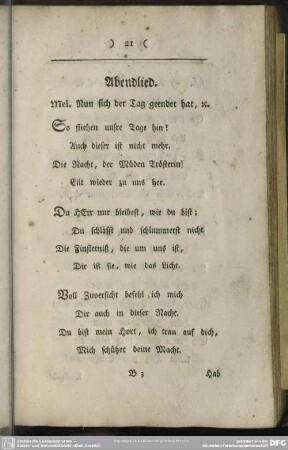 ) 21 (
Abendlied.
Mel. Nun sich der Tag geendet hat, ꝛc.
So fliehen unsre Tage hin!
Auch dieser ist nicht mehr.
Die Nacht, der Müden Trösterin!
Eilt wieder zu uns her.
Du HErr nur bleibest, wie du bist;
Du schläfst und schlummerst nicht
Die Finsterniß, die um uns ist,
Dir ist sie, wie das Licht.
Voll Zuversicht befehl ich mich
Dir auch in dieser Nacht.
Du bist mein Hort, ich trau auf dich,
Mich schützet deine Macht.
B 3 Hab
DFG